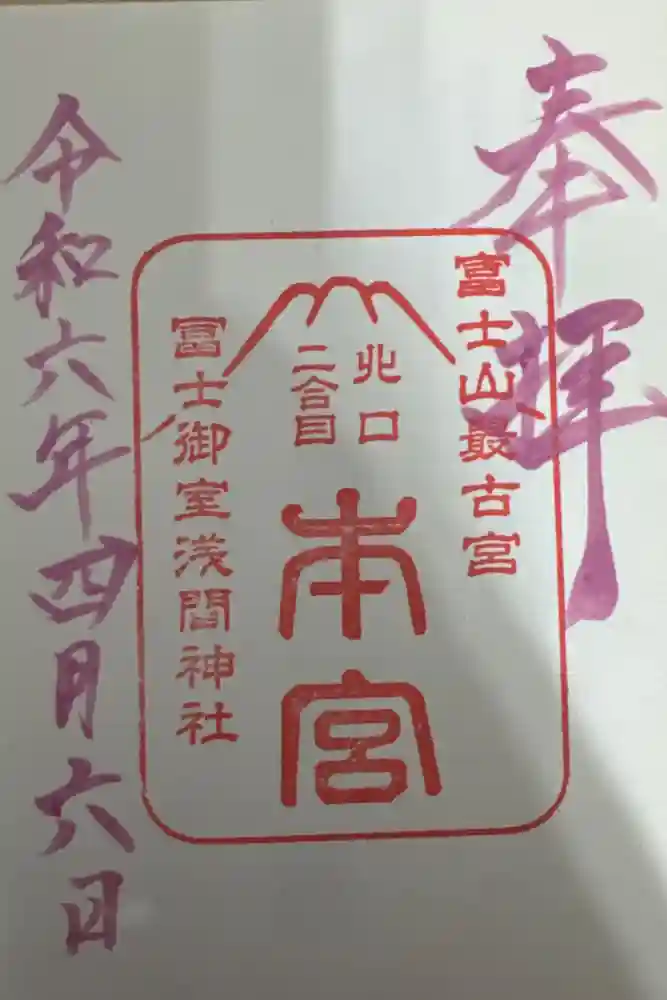 奉拝
冨士山最古宮
北口
二合目
本宮
冨士御室浅間神社
令和六年四月六日